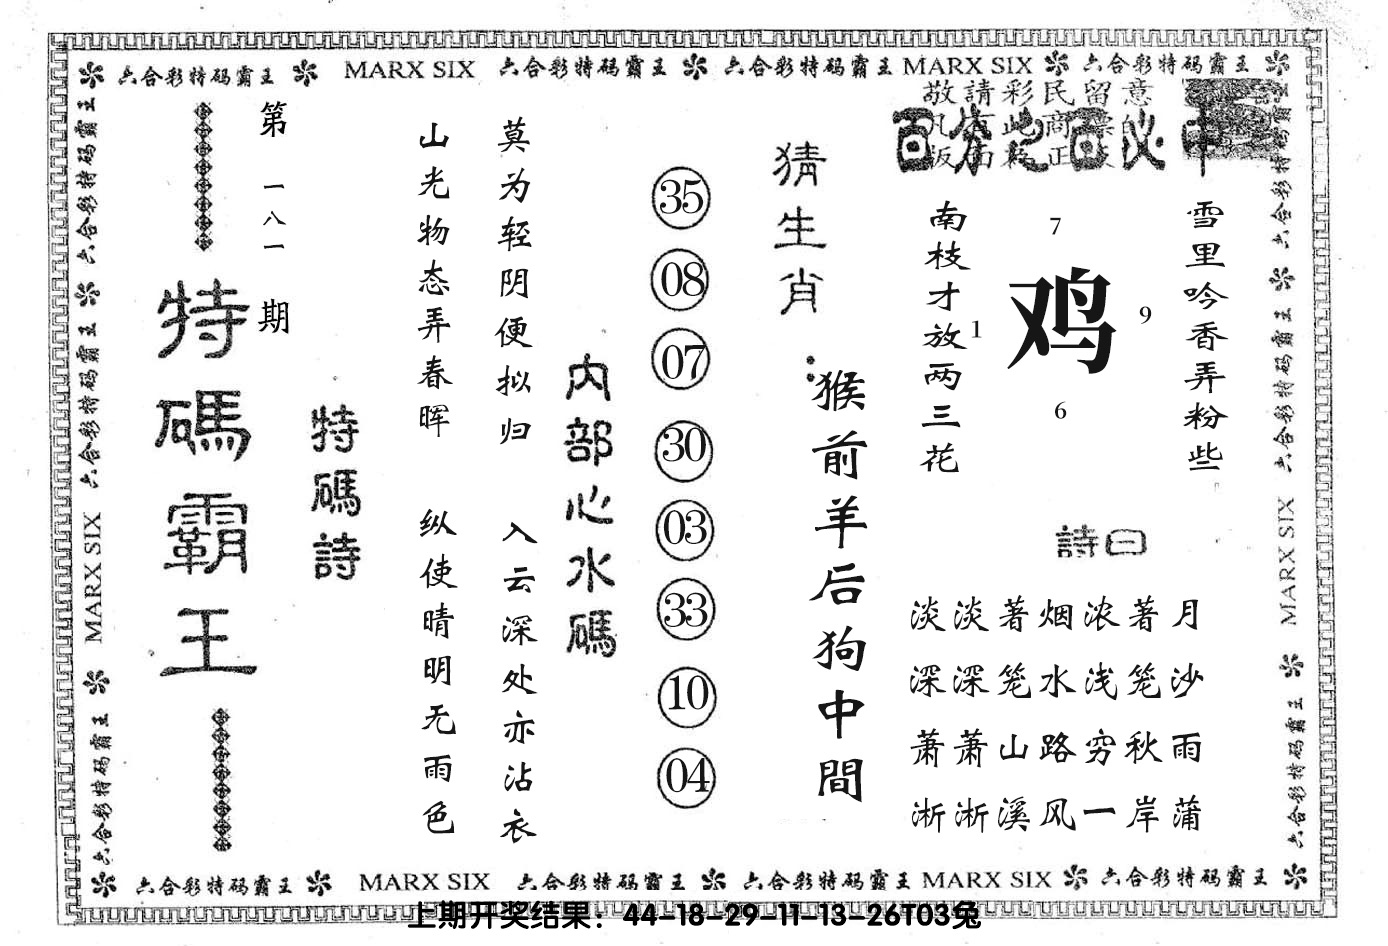 六合彩特码霸王 MARX SIX 六合彩特码霸王 六合彩特码霸王 MARX SIX 六合彩特码霸王
六合彩特码霸王
六合彩特码霸王
MARX SIX
六合彩特码霸王
第一八一期
特碼霸王
特碼詩
山光物态弄春晖
纵使晴明无雨色
莫为轻阴便拟归
入云深处亦沾衣
内部心水碼
35
08
07
30
03
33
10
04
猜生肖:
猴前羊后狗中間
敬請彩民留意
百分之百必中
南枝才放两三花
7
1
鸡
9
6
雪里吟香弄粉些
詩曰
淡淡著烟浓著月
深深笼水浅笼沙
萧萧山路穷秋雨
淅淅溪风一岸蒲
六合彩特码霸王
六合彩特码霸王
MARX SIX
六合彩特码霸王
六合彩特码霸王 MARX SIX 六合彩特码霸王 六合彩特码霸王 MARX SIX 六合彩特码霸王
上期开奖结果：44-18-29-11-13-26T03兔